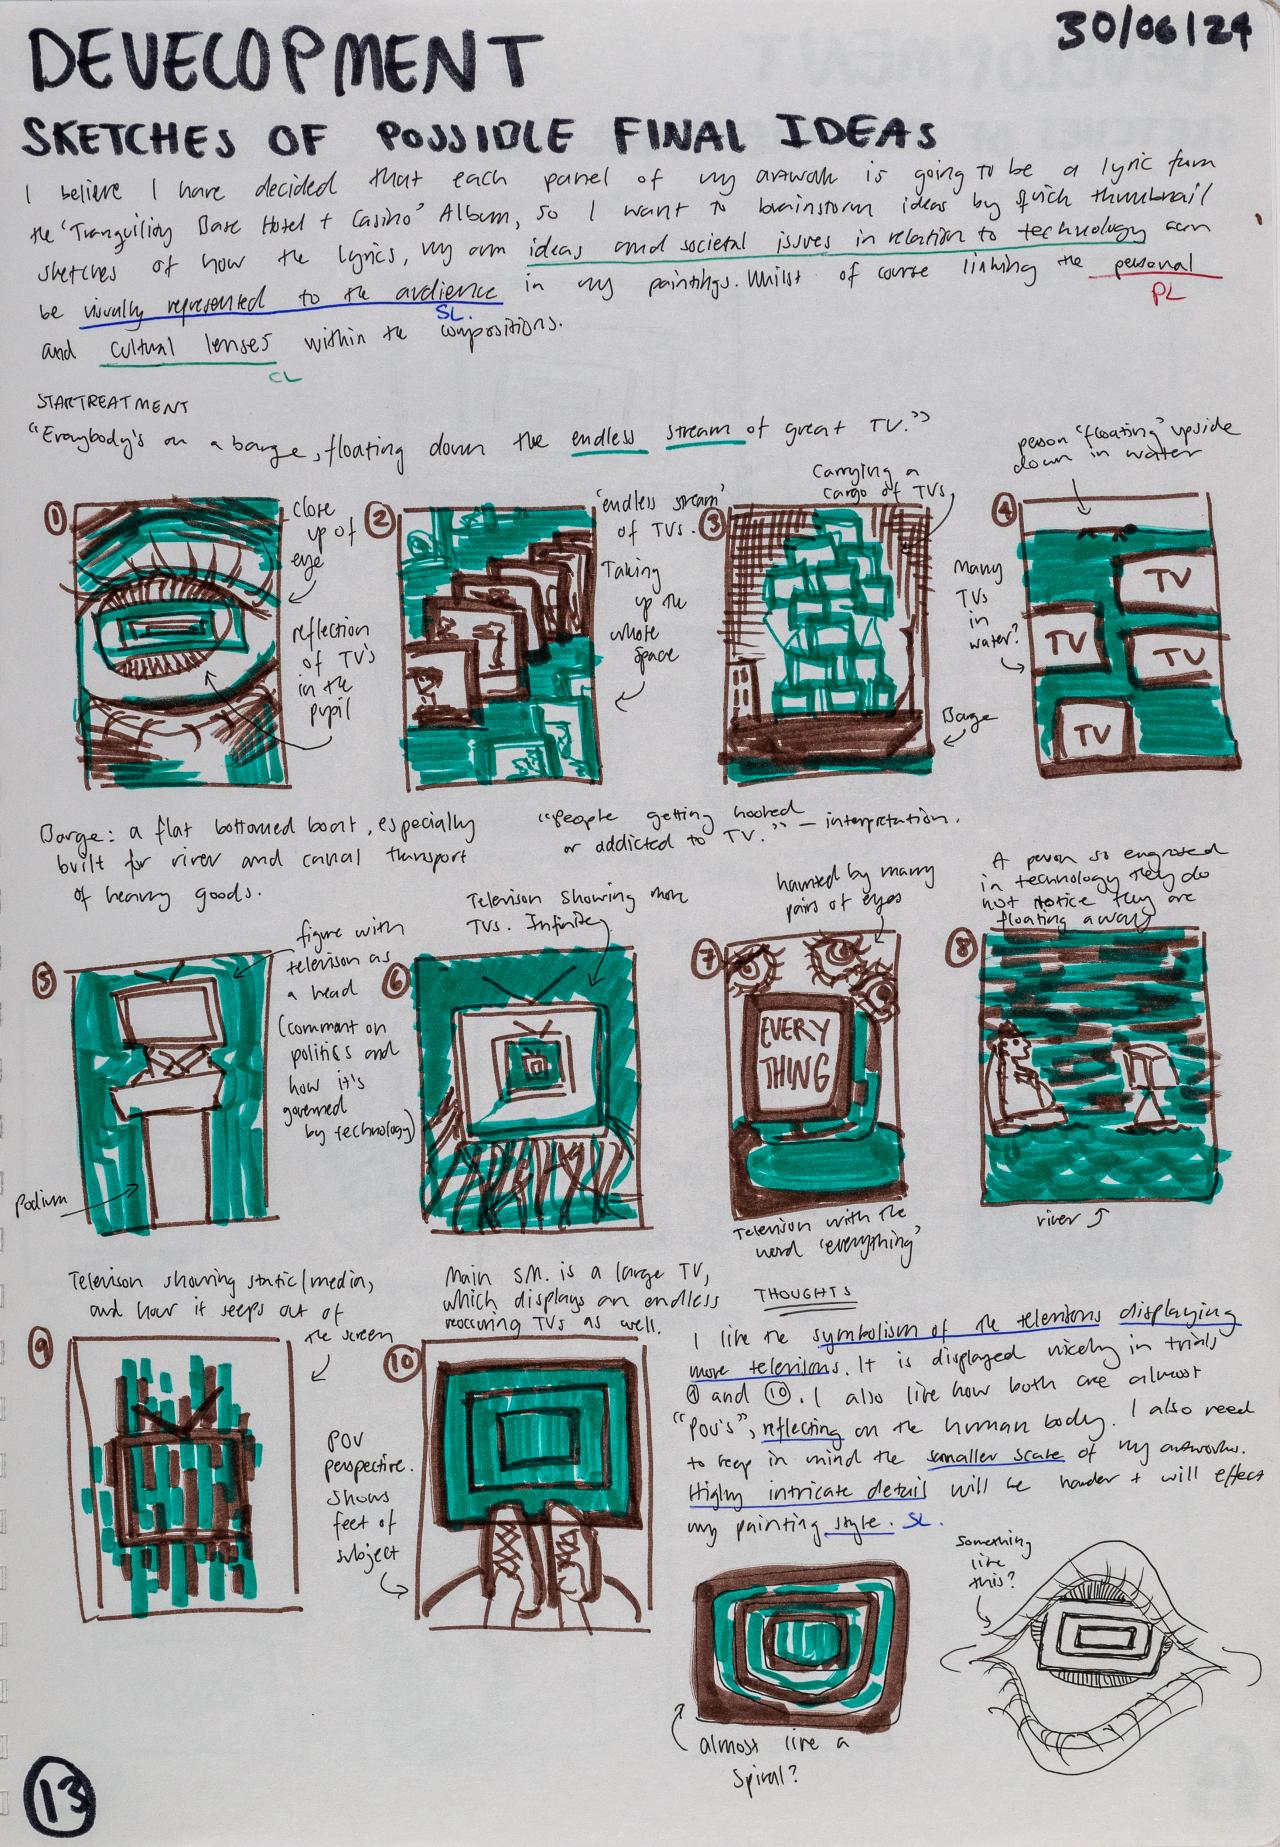 30/06/24
DEVELOPMENT
SKETCHES OF POSSIBLE FINAL IDEAS
I believe I have decided that each panel of my artwork is going to be a lyric from
the 'Tranquility Base Hotel + Casino' Album, so I want to brainstorm ideas by quick thumbnail
sketches of how the lyrics, my own ideas and societal issues in relation to technology can
be visually represented to the audience in my paintings. Whilst of course linking the personal
SL.
PL
and cultural lenses within the compositions.
CL
STARTREATMENT
"Everybody's on a barge, floating down the endless stream of great TV."
①
close
up of
eye
reflection
of TV's
in the
pupil
②
'endless stream'
of TVs.
Taking
up the
whole
space
③
Carrying a
cargo of TVs
Barge
④
person 'floating' upside
down in water
Many
TVs
in
water?
TV
TV
TV
TV
Barge: a flat bottomed boat, especially
built for river and canal transport
of heavy goods.
"people getting hooked
or addicted to TV." – interpretation.
⑤
figure with
television as
a head
(comment on
politics and
how it's
governed
by technology)
Podium
⑥
Televison showing more
TVs. Infinity
⑦
haunted by many
pairs of eyes
EVERY
THING
Televison with the
word 'everything'
⑧
A person so engrosed
in technology they do
not notice they are
floating away
river
Televison showing static/media,
and how it seeps out of
the screen
⑨
Main S.M. is a large TV,
which displays an endless
reoccuring TVs as well.
⑩
POV
perspective.
Shows
feet of
subject
THOUGHTS
I like the symbolism of the televisons displaying
more televisons. It is displayed nicely in trials
① and ⑩. I also like how both are almost
"POV's", reflecting on the human body. I also need
to keep in mind the smaller scale of my artworks.
Highly intricate detail will be harder + will effect
my painting style. SL.
almost like a
spiral?
Something
like
this?
13